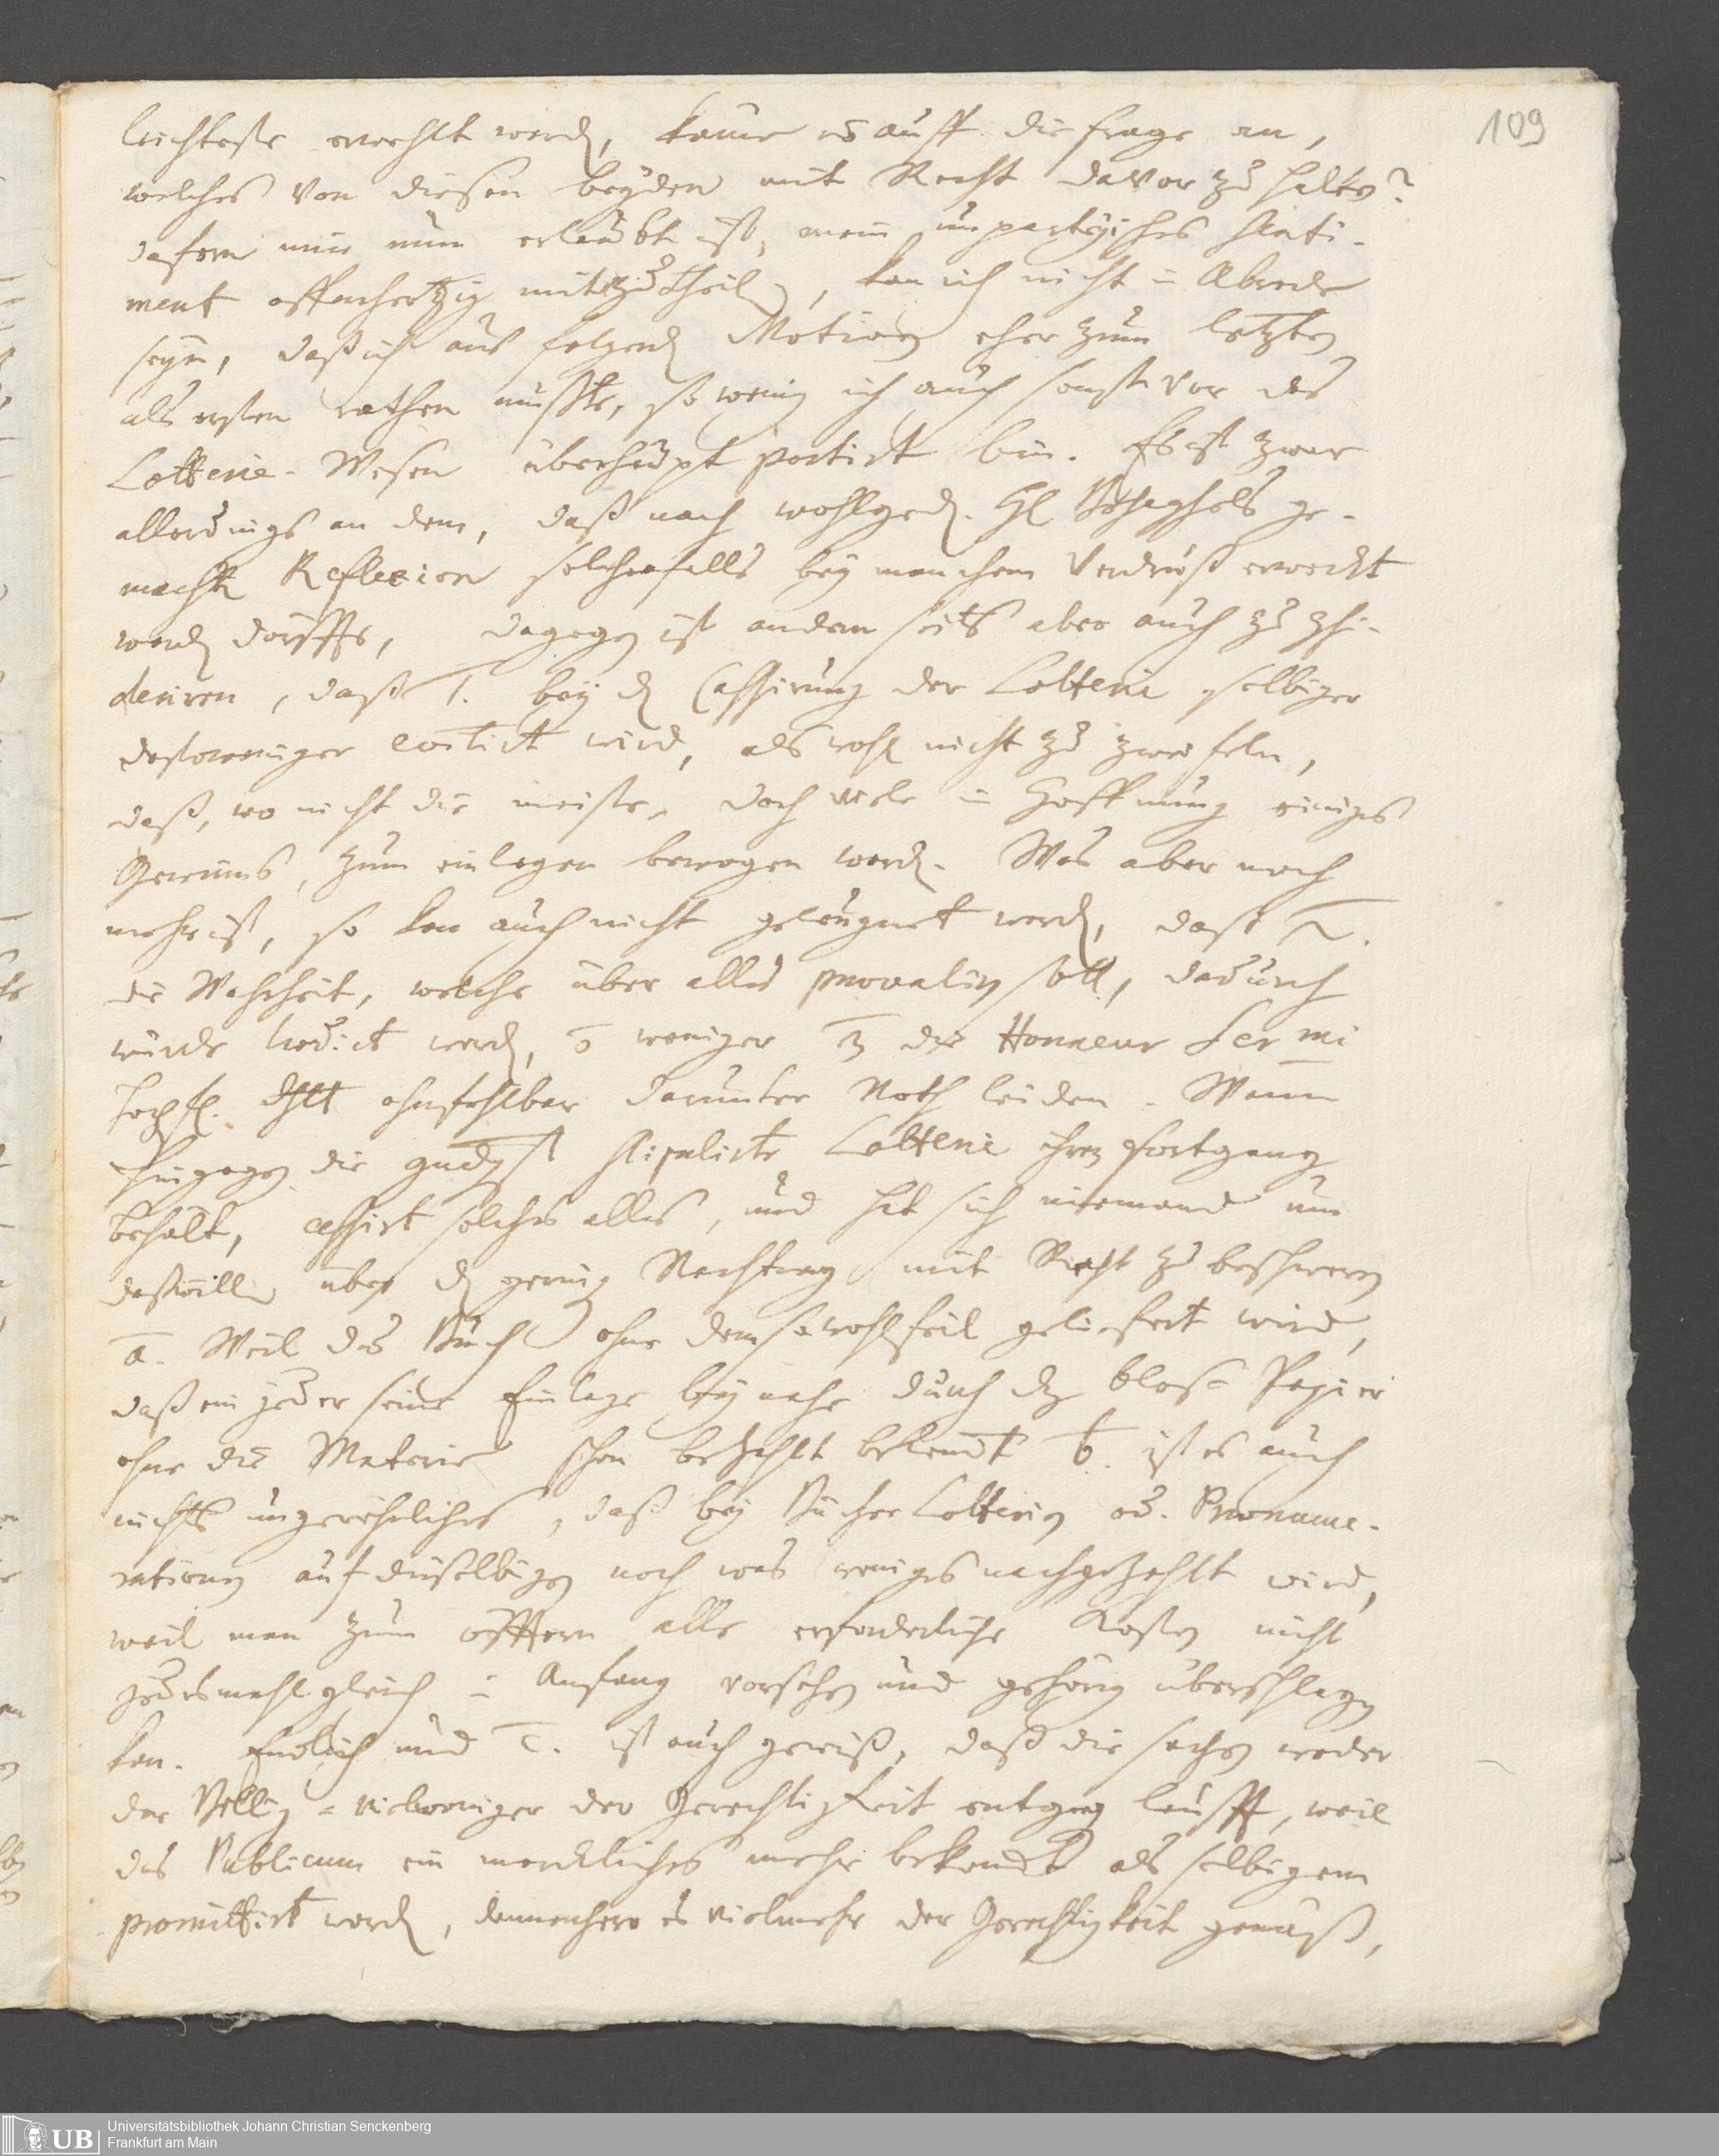 109
leichteste erwehlt werden, käme es auff die frage an,
welches von diesen beyden mit Recht davor zu halten?
dafern mir nun erlaubt ist, mein unpartheyisches Senti-
ment offenhertzig mitzutheilen, kan ich nicht in Abrede
seyn, daß ich aus folgenden Motiven eher zum letzten
als ersten rathen müsste, so wenig ich auch sonst vor das
Lotterie-Wesen überhaupt portirt bin. Es ist zwar
allerdings an dem, daß nach wohlged. H ge-
machte Reflexion solchenfalls bey manchem Verdruß erweckt
werden dörffte, dagegen ist andern seits aber auch zu
deriren, daß 1. bey der Cassirung der Lotterie selbiger
destoweniger evitirt wird, als wohl nicht zu zweifeln,
daß, wo nicht die meiste, doch viele in Hoffnung einiges
Gewinns, zum einlegen bewogen worden. Was aber noch
mehr ist, so kan auch nicht geleugnet werden, daß 2.
die Wahrheit, welche über alles prevaliren soll, dadurch
würde laedirt werden, weniger 3 die Honneur Ser mi
ohnfehlbar darunter Noth leiden. Wann
hingegen die gnädigst stipulirte Lotterie ihren fortgang
behält, cessirt solches alles, und hat sich niemand um
deßwillen über den geringen Nachtrag mit Recht zu beschweren
a. Weil das Buch ohne dem so wohlfeil geliefert wird,
daß ein jeder seine Einlage bey nahe durch das blose Papier
ohne die Materie schon bezahlt bekommt b. ist es auch
nichts ungewöhnliches, daß bey Bücher Lotterien od. Praenume-
rationen auf dieselbigen noch was weniges nachgezahlt wird,
weil man zum öfftern alle erforderliche Kosten nicht
jedesmahl gleich im Anfang vorsehen und gehörig überschlagen
kan. Endlich und c. ist auch gewiß, daß die sachen weder
der Billig- vielweniger der Gerechtigkeit entgegen laufft, weil
das Publicum ein merckliches mehr bekommt als selbigem
promittirt worden, dannenhero es vielmehr der Gerechtigkeit gemäß,
UB
Universitätsbibliothek Johann Christian Senckenberg
Frankfurt am Main